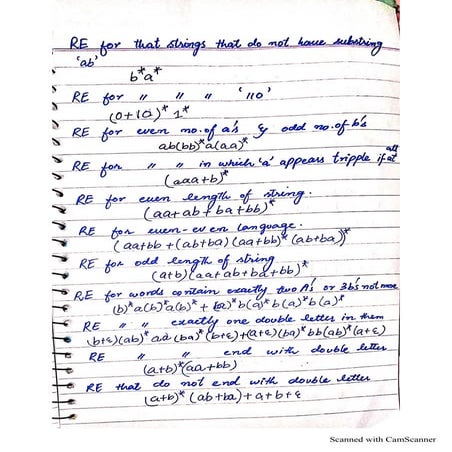 RE for that strings that do not have substring
'ab'
b*a*
RE for " " " '110'
(0+10)* 1*
RE for even no. of a's & odd no. of b's
ab(bb)*a(aa)*
RE for " " in which 'a' appears tripple if at all
(aaa+b)*
RE for even length of string.
(aa+ab+ba+bb)*
RE for even-even language.
(aa+bb+(ab+ba)(aa+bb)*(ab+ba))*
RE for odd length of string
(a+b)(aa+ab+ba+bb)*
RE for words contain exactly two A's or 3b's not more
(b)*a(b)*a(b)* + (a)*b(a)*b(a)*b(a)*
RE " " exactly one double letter in them
(b+ε)(ab)* aa (ba)*(b+ε)+(a+ε)(ba)*bb(ab)*(a+ε)
RE " " end with double letter
(a+b)*(aa+bb)
RE that do not end with double letter
(a+b)* (ab+ba)+a+b+ε
Scanned with CamScanner